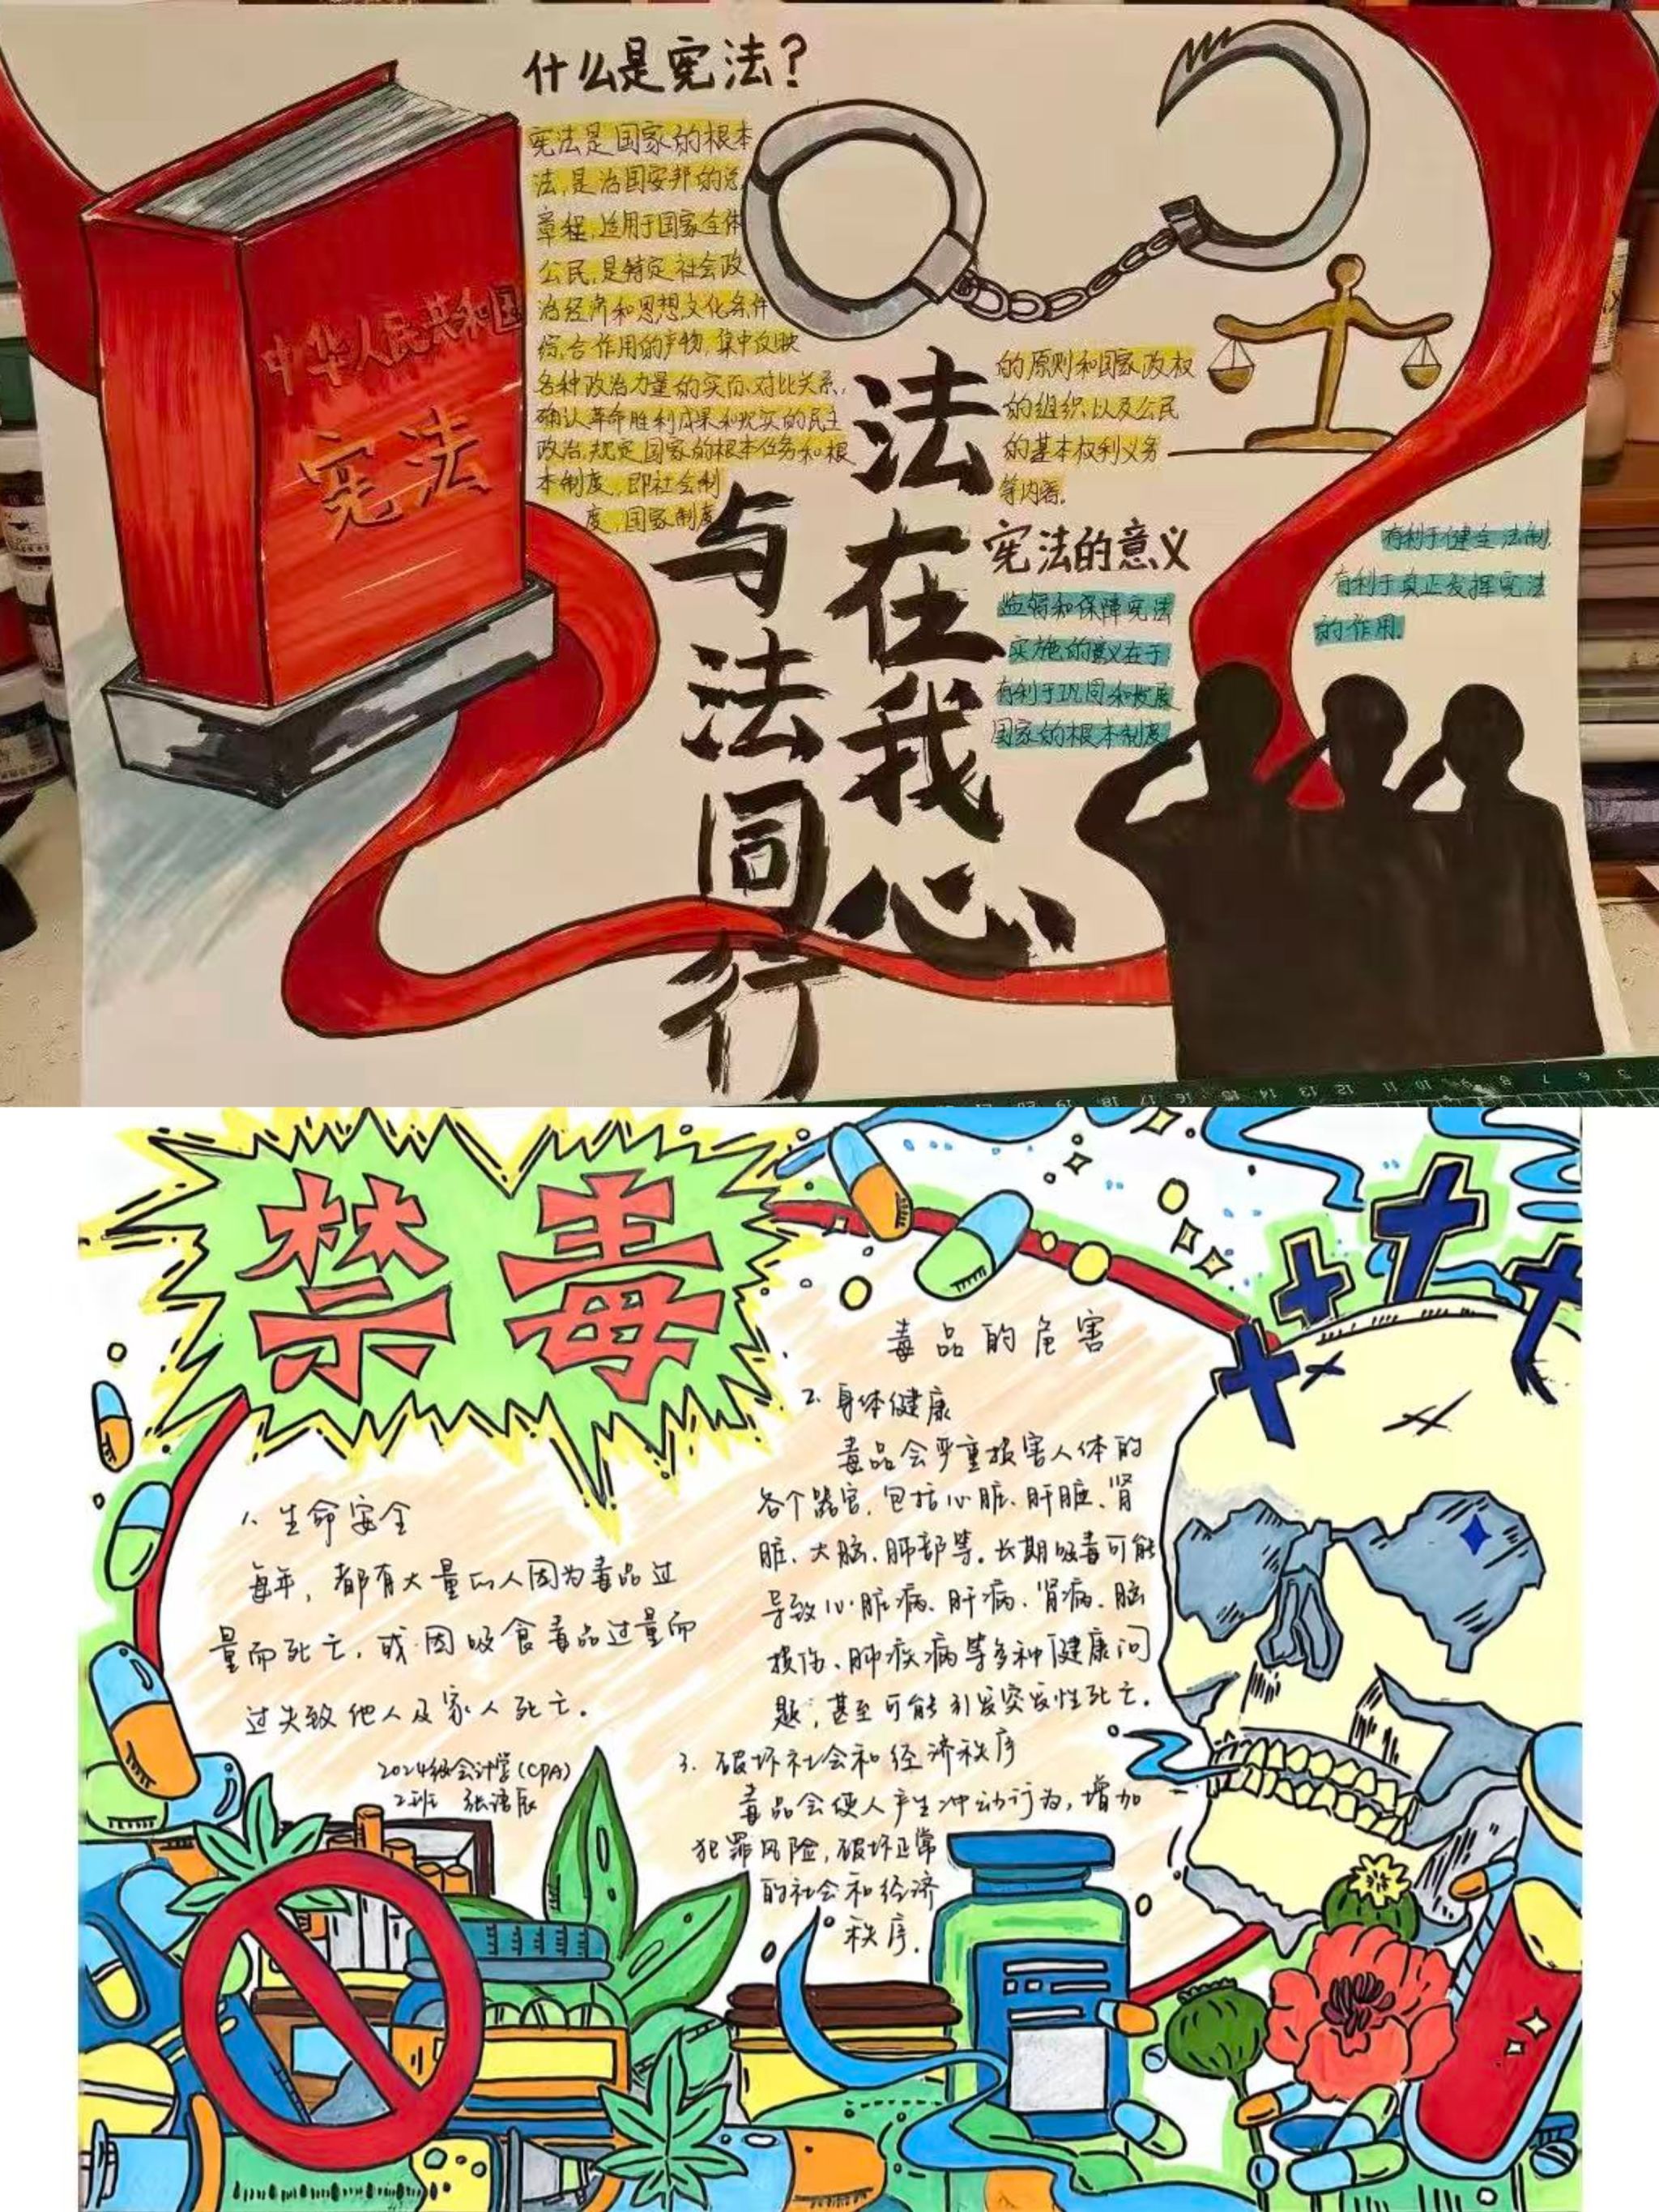 什么是宪法？
宪法是国家的根本
法,是治国安邦的总
章程,适用于国家全体
公民,是特定社会政
治经济和思想文化条件
综合作用的产物,集中反映
各种政治力量的实际对比关系,
确认革命胜利成果和现实的民主
政治,规定国家的根本任务和根
本制度,即社会制
度,国家制度
的原则和国家政权
的组织以及公民
的基本权利义务
等内容。
中华人民共和国
宪法
法在我心
与法同行
宪法的意义
监督和保障宪法
实施的意义在于
有利于巩固和发展
国家的根本制度
有利于健全法制,
有利于真正发挥宪法
的作用。
5 6 7 8 9 10 11 12 13 14 15 16 17 18 19 20 21
禁毒
1、生命安全
每年，都有大量的人因为毒品过
量而死亡，或因吸食毒品过量而
过失致他人及家人死亡。
2024级会计学(CPA)
2班 张语辰
毒品的危害
2、身体健康
毒品会严重损害人体的
各个器官,包括心脏、肝脏、肾
脏、大脑、肺部等。长期吸毒可能
导致心脏病、肝病、肾病、脑
损伤、肺疾病等多种健康问
题;甚至可能引发突发性死亡。
3. 破坏社会和经济秩序
毒品会使人产生冲动行为,增加
犯罪风险,破坏正常
的社会和经济
秩序。